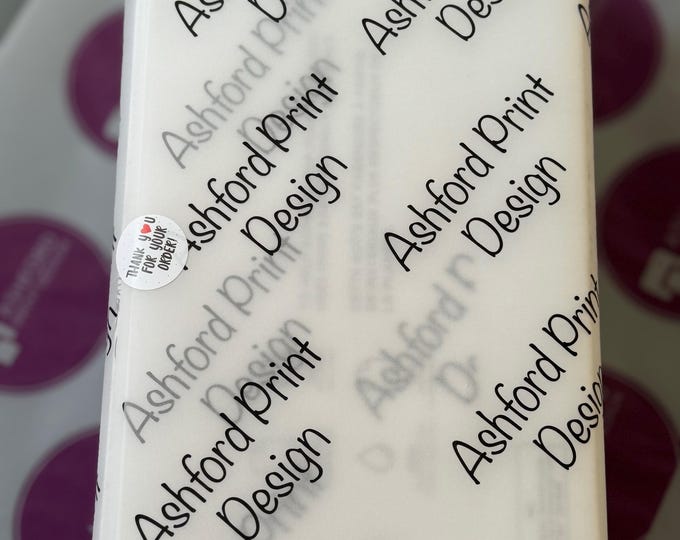 Print
Design
Ashford Print
Design
Ashford Print
Design
Ashford Print
Design
THANK Y♥U
FOR YOUR
ORDER!
Ashford Print
Design
Ashford
Ashford Print
Design
Ashford Print
Design